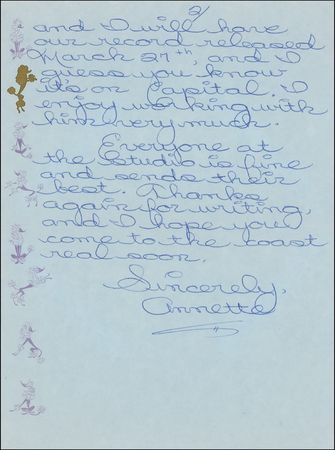 2
and I will have
our record released
March 27th, and I
guess you know
it's on Capital. I
enjoy working with
him very much.
Everyone at
the Studio is fine
and sends their
best. Thanks
again for writing,
and I hope you
come to the coast
real soon.
Sincerely,
Annette